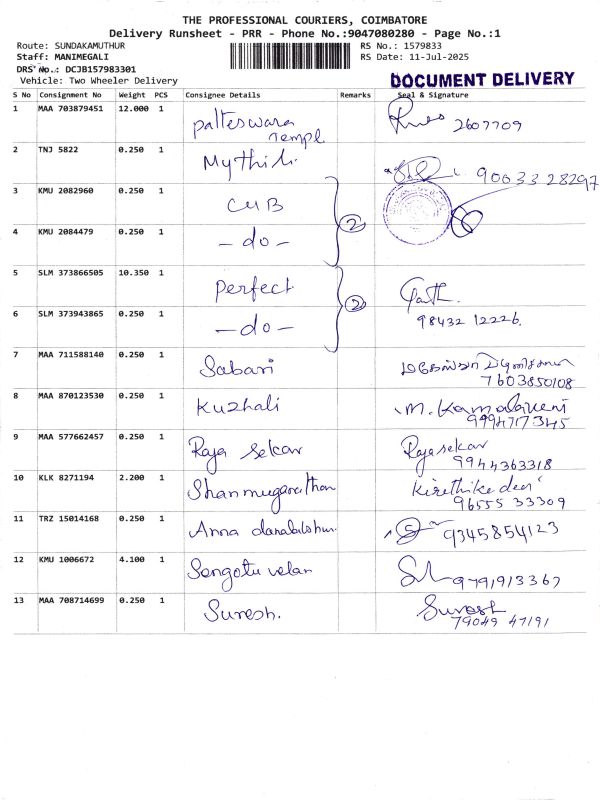 THE PROFESSIONAL COURIERS, COIMBATORE
Delivery Runsheet - PRR - Phone No.:9047080280 - Page No.:1
Route: SUNDAKAMUTHUR
RS No.: 1579833
Staff: MANIMEGALI
RS Date: 11-Jul-2025
DRS No.: DCJB157983301
Vehicle: Two Wheeler Delivery
DOCUMENT DELIVERY
S No Consignment No Weight PCS Consignee Details Remarks Seal & Signature
1 MAA 703879451 12.000 1 patteswara Templ 2607709
2 TNJ 5822 0.250 1 Mythili 90033 28297
3 KMU 2082960 0.250 1 CUB
2
4 KMU 2084479 0.250 1 - do -
5 SLM 373866505 10.350 1 Perfect
2
6 SLM 373943865 0.250 1 - do - 98432 12226
7 MAA 711588140 0.250 1 Sabari 7603850108
8 MAA 870123530 0.250 1 Kuzhali M. Kamalaveni 9994717345
9 MAA 577662457 0.250 1 Raja Sekar Rajasekar 9944363318
10 KLK 8271194 2.200 1 Shanmuganathan 96555 33309
11 TRZ 15014168 0.250 1 Anna 9345854123
12 KMU 1006672 4.100 1 Sengotu velan 9791913367
13 MAA 708714699 0.250 1 Suresh. Suresh 79049 47191